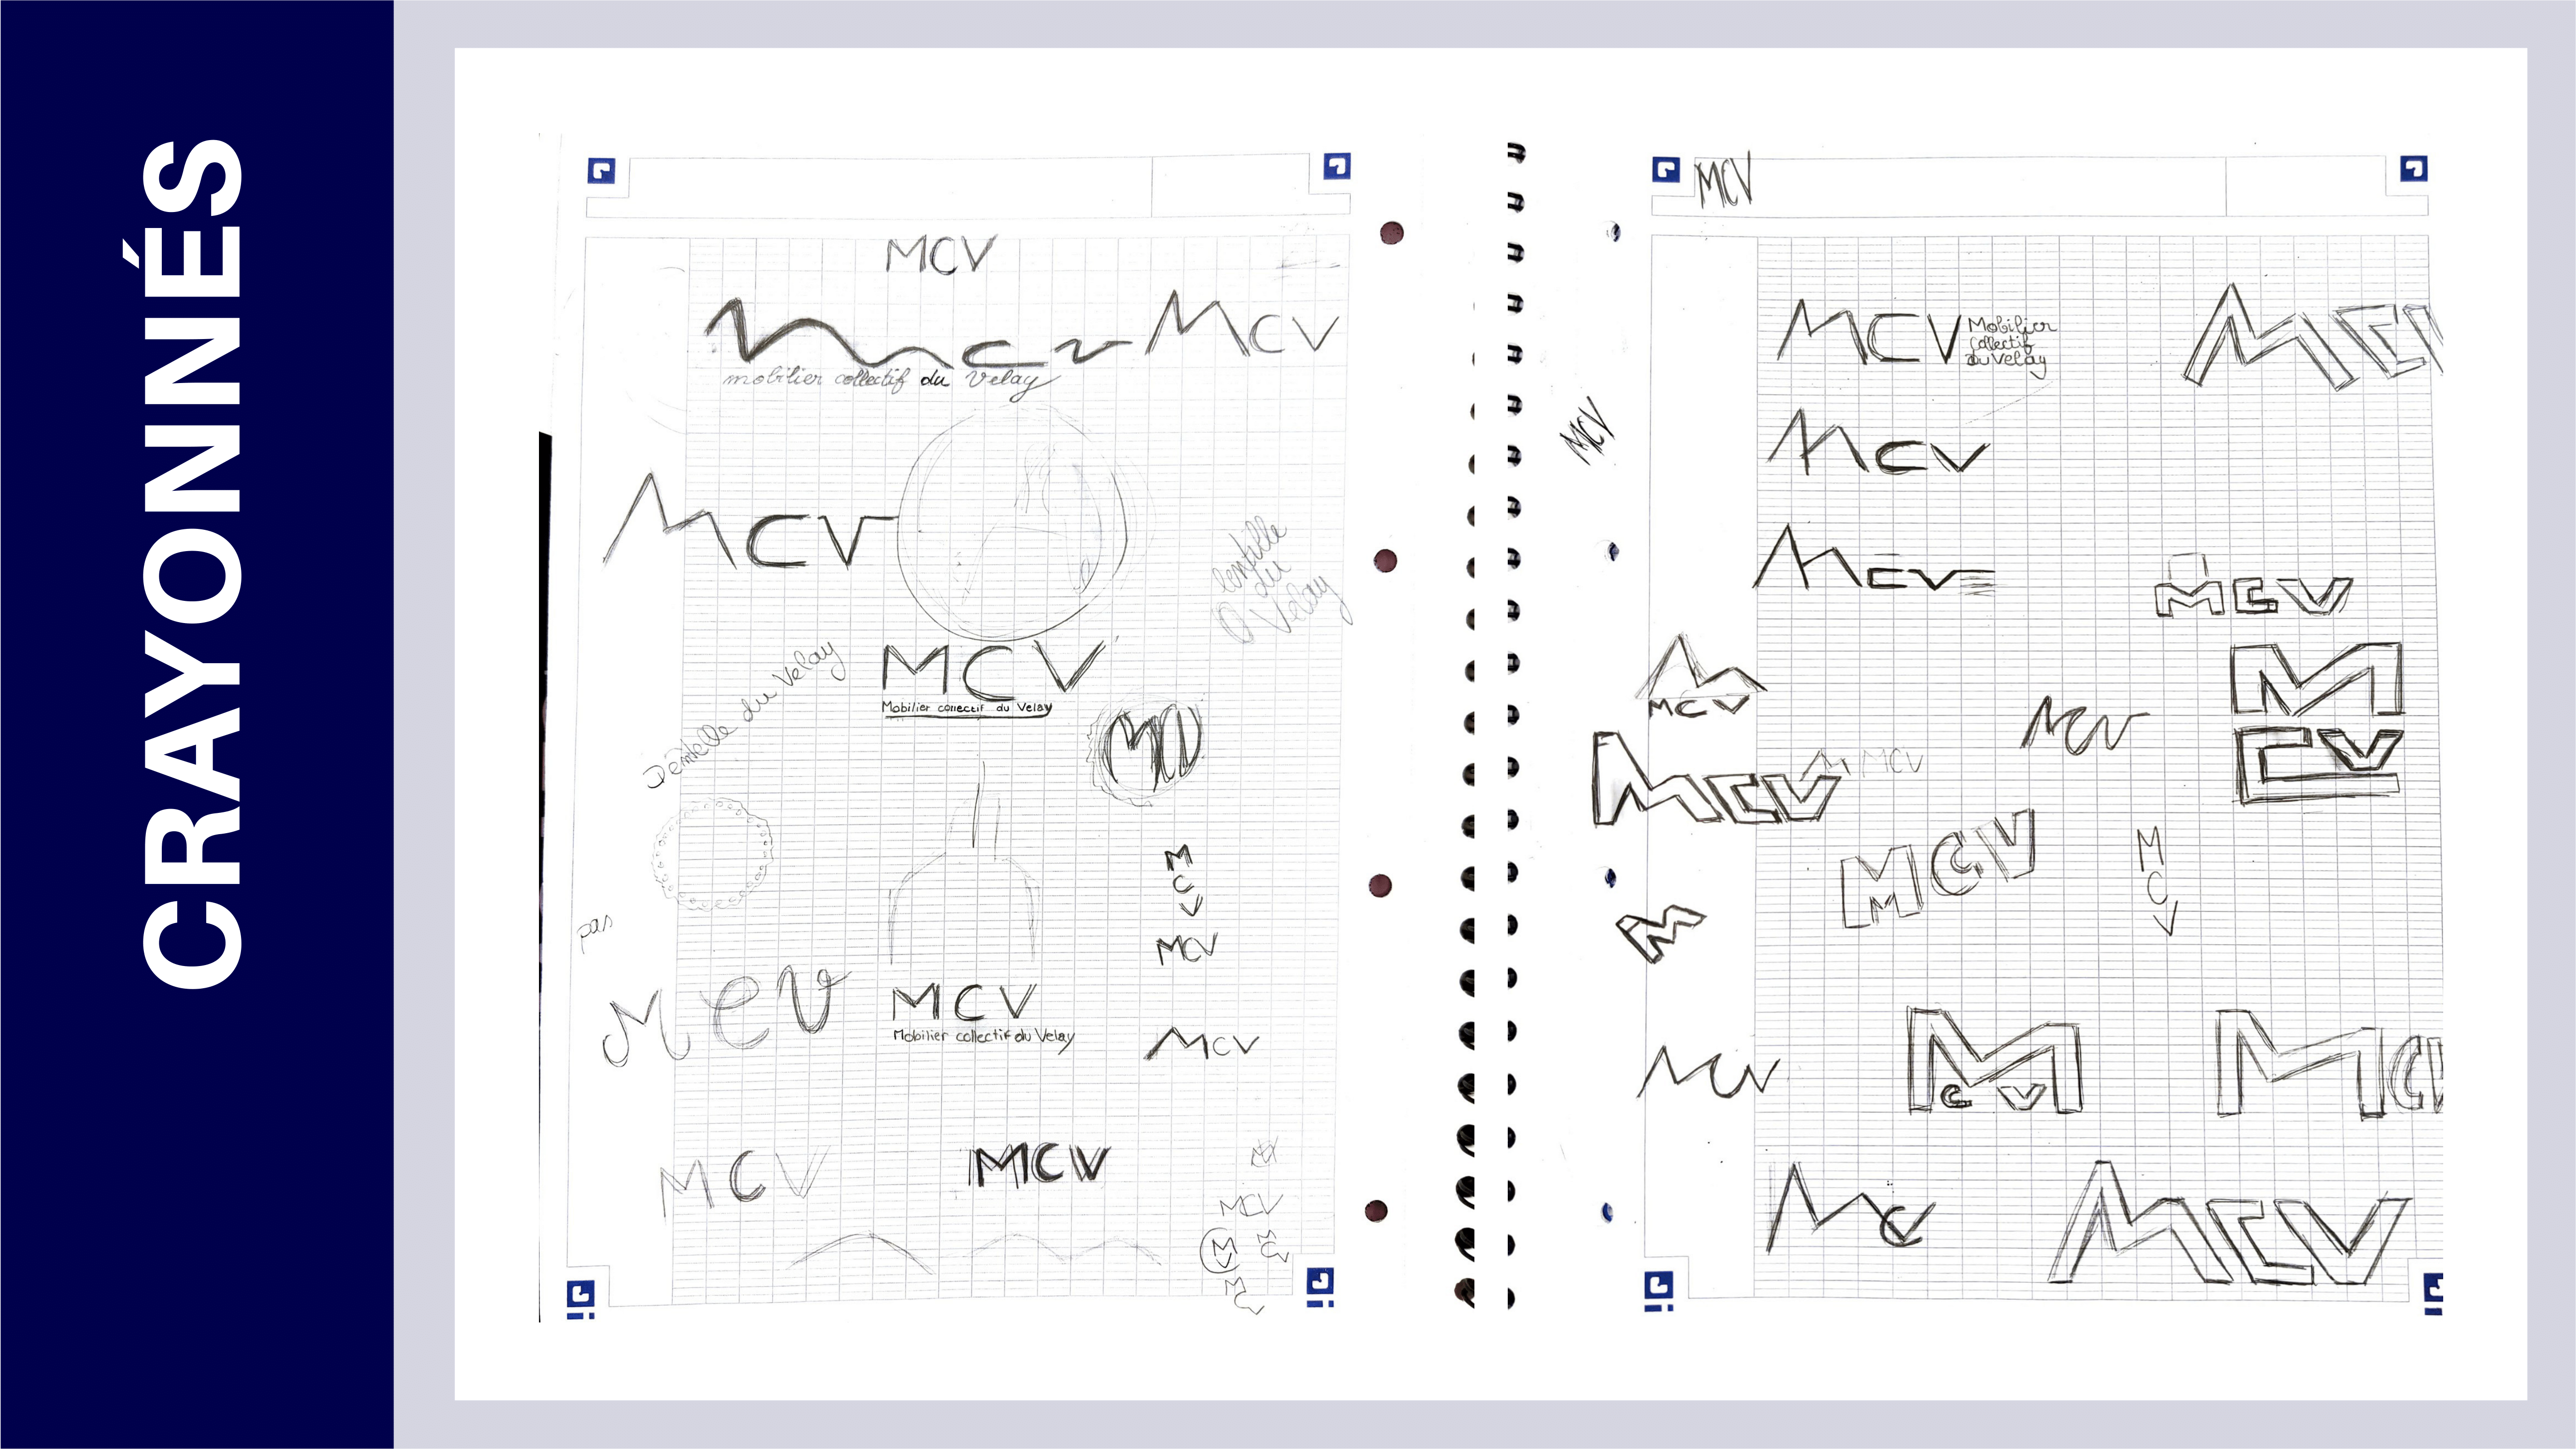 CRAYONNÉS
MCV
mcv
mobilier collectif du Velay
MCV
MCV
lentille
du
Velay
MCV
Mobilier collectif du Velay
Dentelle du Velay
MCV
M
C
V
pas
MCV
MCV
MCV
Mobilier collectif du Velay
MCV
MCV
MCV
MCV
M
V
M
C
V
M
C
V
MCV
MCV
Mobilier
Collectif
du Velay
MCV
MCV
MCV
MCV
MCV
M
MCV
M
CV
MCV
MCV
MCV
MCV
M
C
V
M
MCV
M
C V
MCV
MCV
MCV